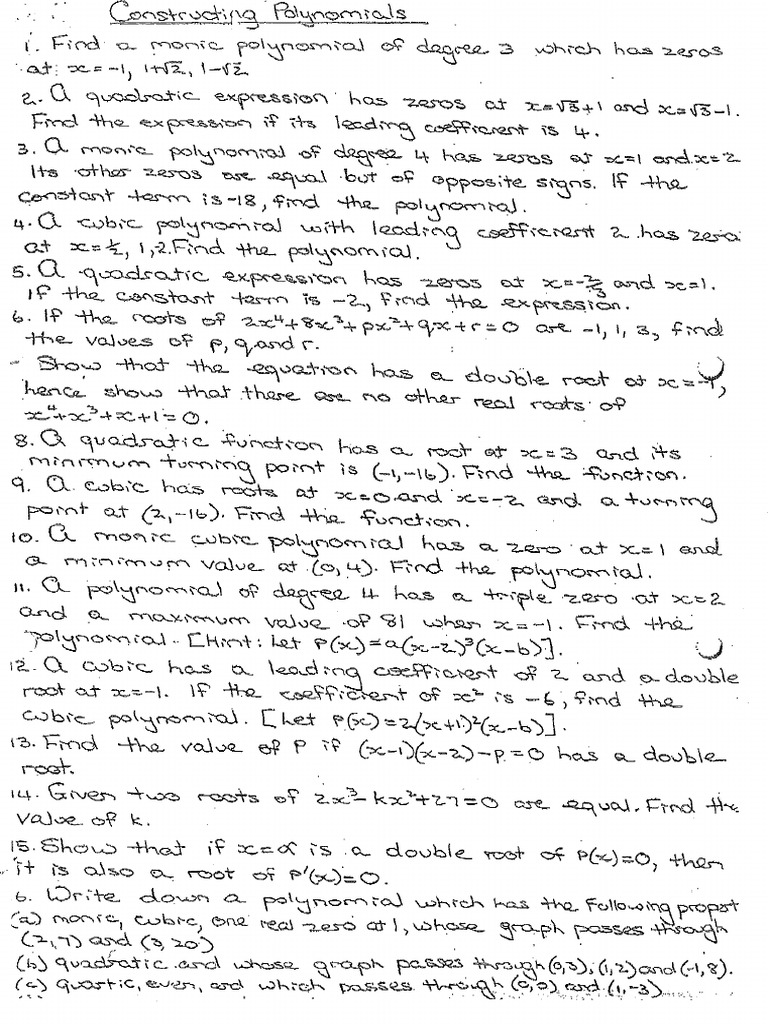 Constructing Polynomials
1. Find a monic polynomial of degree 3 which has zeros
at: x=-1, 1+√2, 1-√2
2. A quadratic expression has zeros at x=√3+1 and x=√3-1.
Find the expression if its leading coefficient is 4.
3. A monic polynomial of degree 4 has zeros at x=1 and x=2
Its other zeros are equal but of opposite signs. If the
constant term is -18, find the polynomial.
4. A cubic polynomial with leading coefficient 2 has zero
at x=½, 1, 2. Find the polynomial.
5. A quadratic expression has zeros at x=-2/3 and x=1.
If the constant term is -2, find the expression.
6. If the roots of 2x⁴+8x³+px²+qx+r=0 are -1, 1, 3, find
the values of p, q and r.
- Show that the equation has a double root at x=-1,
hence show that there are no other real roots of
x⁴+x³+x+1=0.
8. A quadratic function has a root at x=3 and its
minimum turning point is (-1,-16). Find the function.
9. A cubic has roots at x=0 and x=-2 and a turning
point at (2,-16). Find the function.
10. A monic cubic polynomial has a zero at x=1 and
a minimum value at (0,4). Find the polynomial.
11. A polynomial of degree 4 has a triple zero at x=2
and a maximum value of 81 when x=-1. Find the
polynomial. [Hint: Let P(x)=a(x-2)³(x-b)].
12. A cubic has a leading coefficient of 2 and a double
root at x=-1. If the coefficient of x² is -6, find the
cubic polynomial. [Let P(x)=2(x+1)²(x-b)].
13. Find the value of P if (x-1)(x-2)-p=0 has a double
root.
14. Given two roots of 2x³-kx²+27=0 are equal. Find the
value of k.
15. Show that if x=α is a double root of P(x)=0, then
it is also a root of P'(x)=0.
6. Write down a polynomial which has the following propert
(a) monic, cubic, one real zero at 1, whose graph passes through
(2,7) and (3,20)
(b) quadratic and whose graph passes through (0,3), (1,2) and (-1,8).
(c) quartic, even, and which passes through (0,0) and (1,-3)